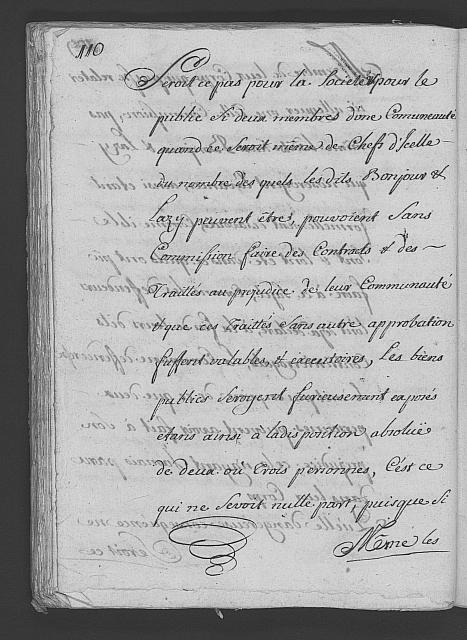 110
Seroit ce pas pour la Societé & pour le
public Si deux membres d'une Comuneauté
quand ce Seroit même de Chefs d'Icelle
du nombre des quels les dits Bonjour &
Lazy peuvent être, pouvoient Sans
Commission faire des Contracts & des
Traittés au prejudice de leur Communauté
& que ces Traittés Sans autre approbation
fussent valables, & executoires, Les biens
publics Seroyent furieusement exposés
etans ainsi à la disposition absoluë
de deux ou trois personnes, C'est ce
qui ne Se voit nulle part, puisque Si
Même les